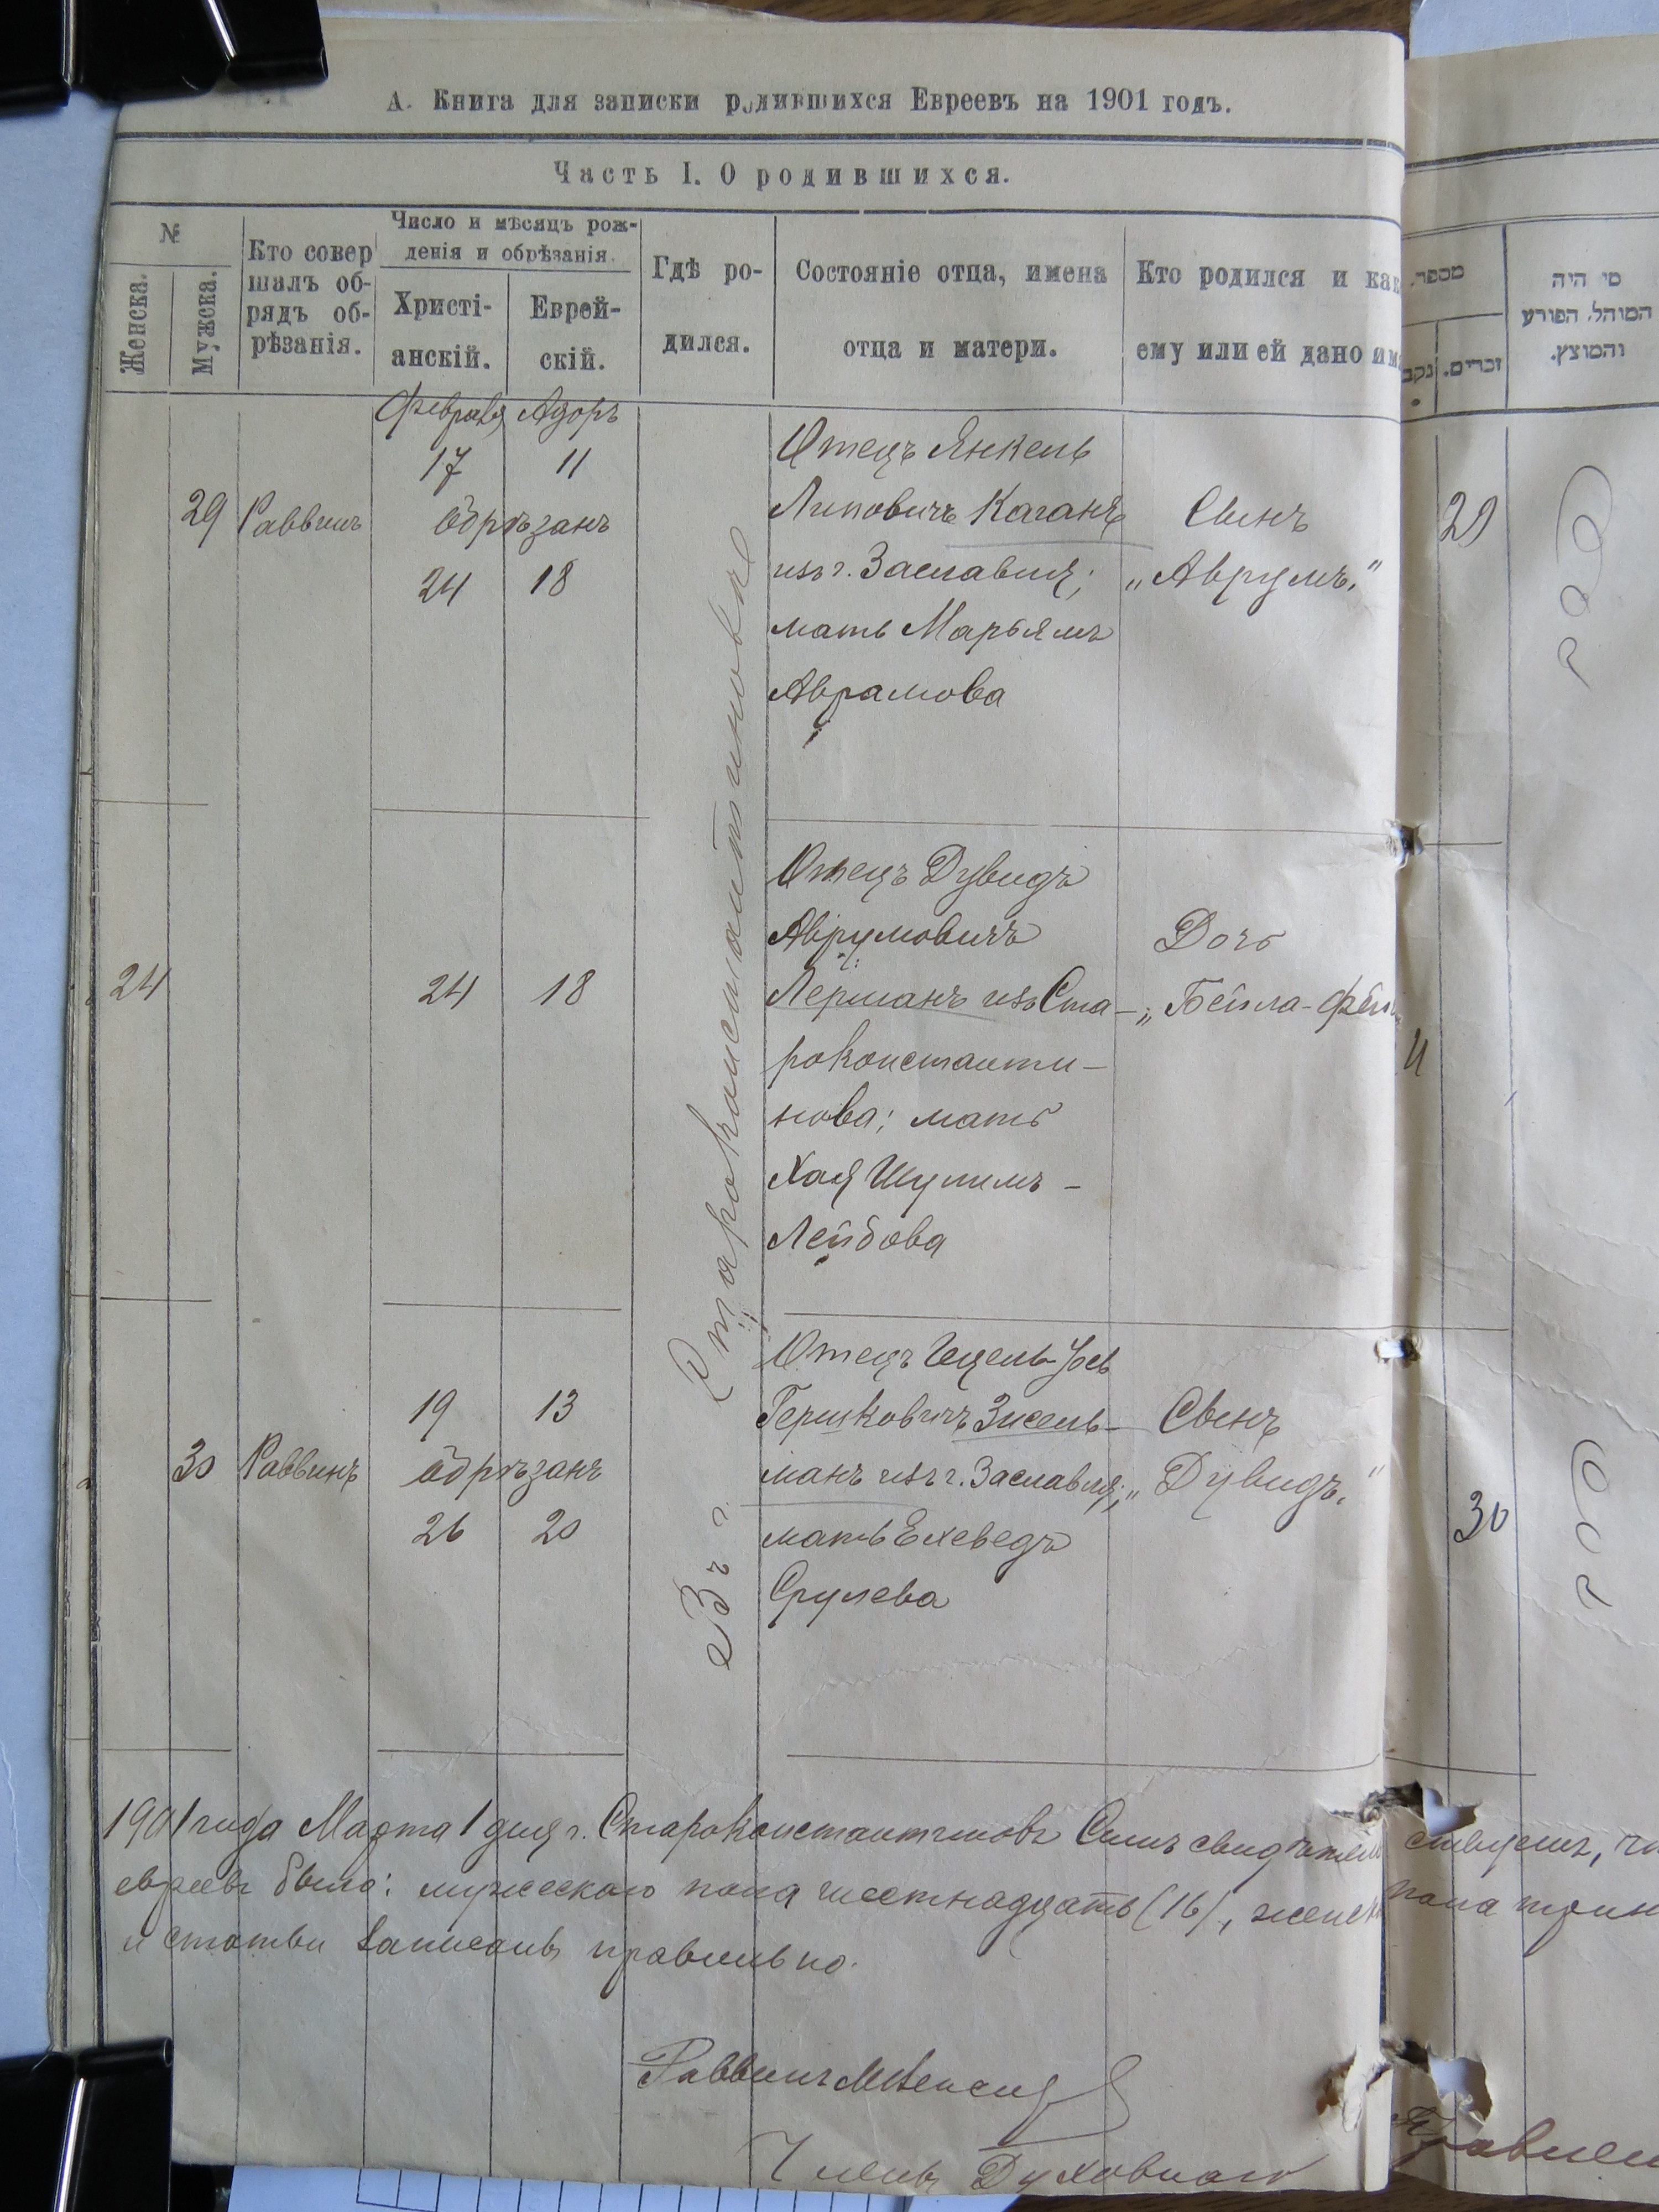 А. Книга для записки родившихся Евреевъ на 1901 годъ.
Часть I. О родившихся.
№
Женска.
Мужска.
Кто совер
шалъ об-
рядъ об-
рѣзанія.
Число и мѣсяцъ рож-
денія и обрѣзанія.
Христі-
анскій.
Еврей-
скій.
Гдѣ ро-
дился.
Состояніе отца, имена
отца и матери.
Кто родился и как
ему или ей дано им
מספר.
נקב
זכרים.
מי היה
המוהל, הפורע
והמוצץ.
Февраля Адоръ
17 11
29 Раввинъ обрѣзанъ
24 18
Отецъ Янкель
Липовичъ Каганъ
изъ г. Заславля;
мать Марьямъ
Аврамова
Сынъ
„Аврумъ."
29
24
24 18
Отецъ Дувидъ
Аврумовичъ
Лерманъ изъ Ста-
роконстанти-
нова; мать
Хая Шулимъ-
Лейбова
Дочь
„Бейла-Фей
19 13
30 Раввинъ обрѣзанъ
26 20
Отецъ Іцель-Іос
Гершковичъ Зисель-
манъ изъ г. Заславля;
мать Ехеведъ
Срулева
Сынъ
„Дувидъ."
30
Въ г. Староконстантиновѣ
1901 года Марта 1 дня г. Староконстантиновъ Симъ свидѣтельствуемъ, чт
евреевъ было: мужескаго пола шестнадцать (16), женск пола трин
и статьи записаны правильно.
Раввинъ
Членъ Духовнаго Правлен